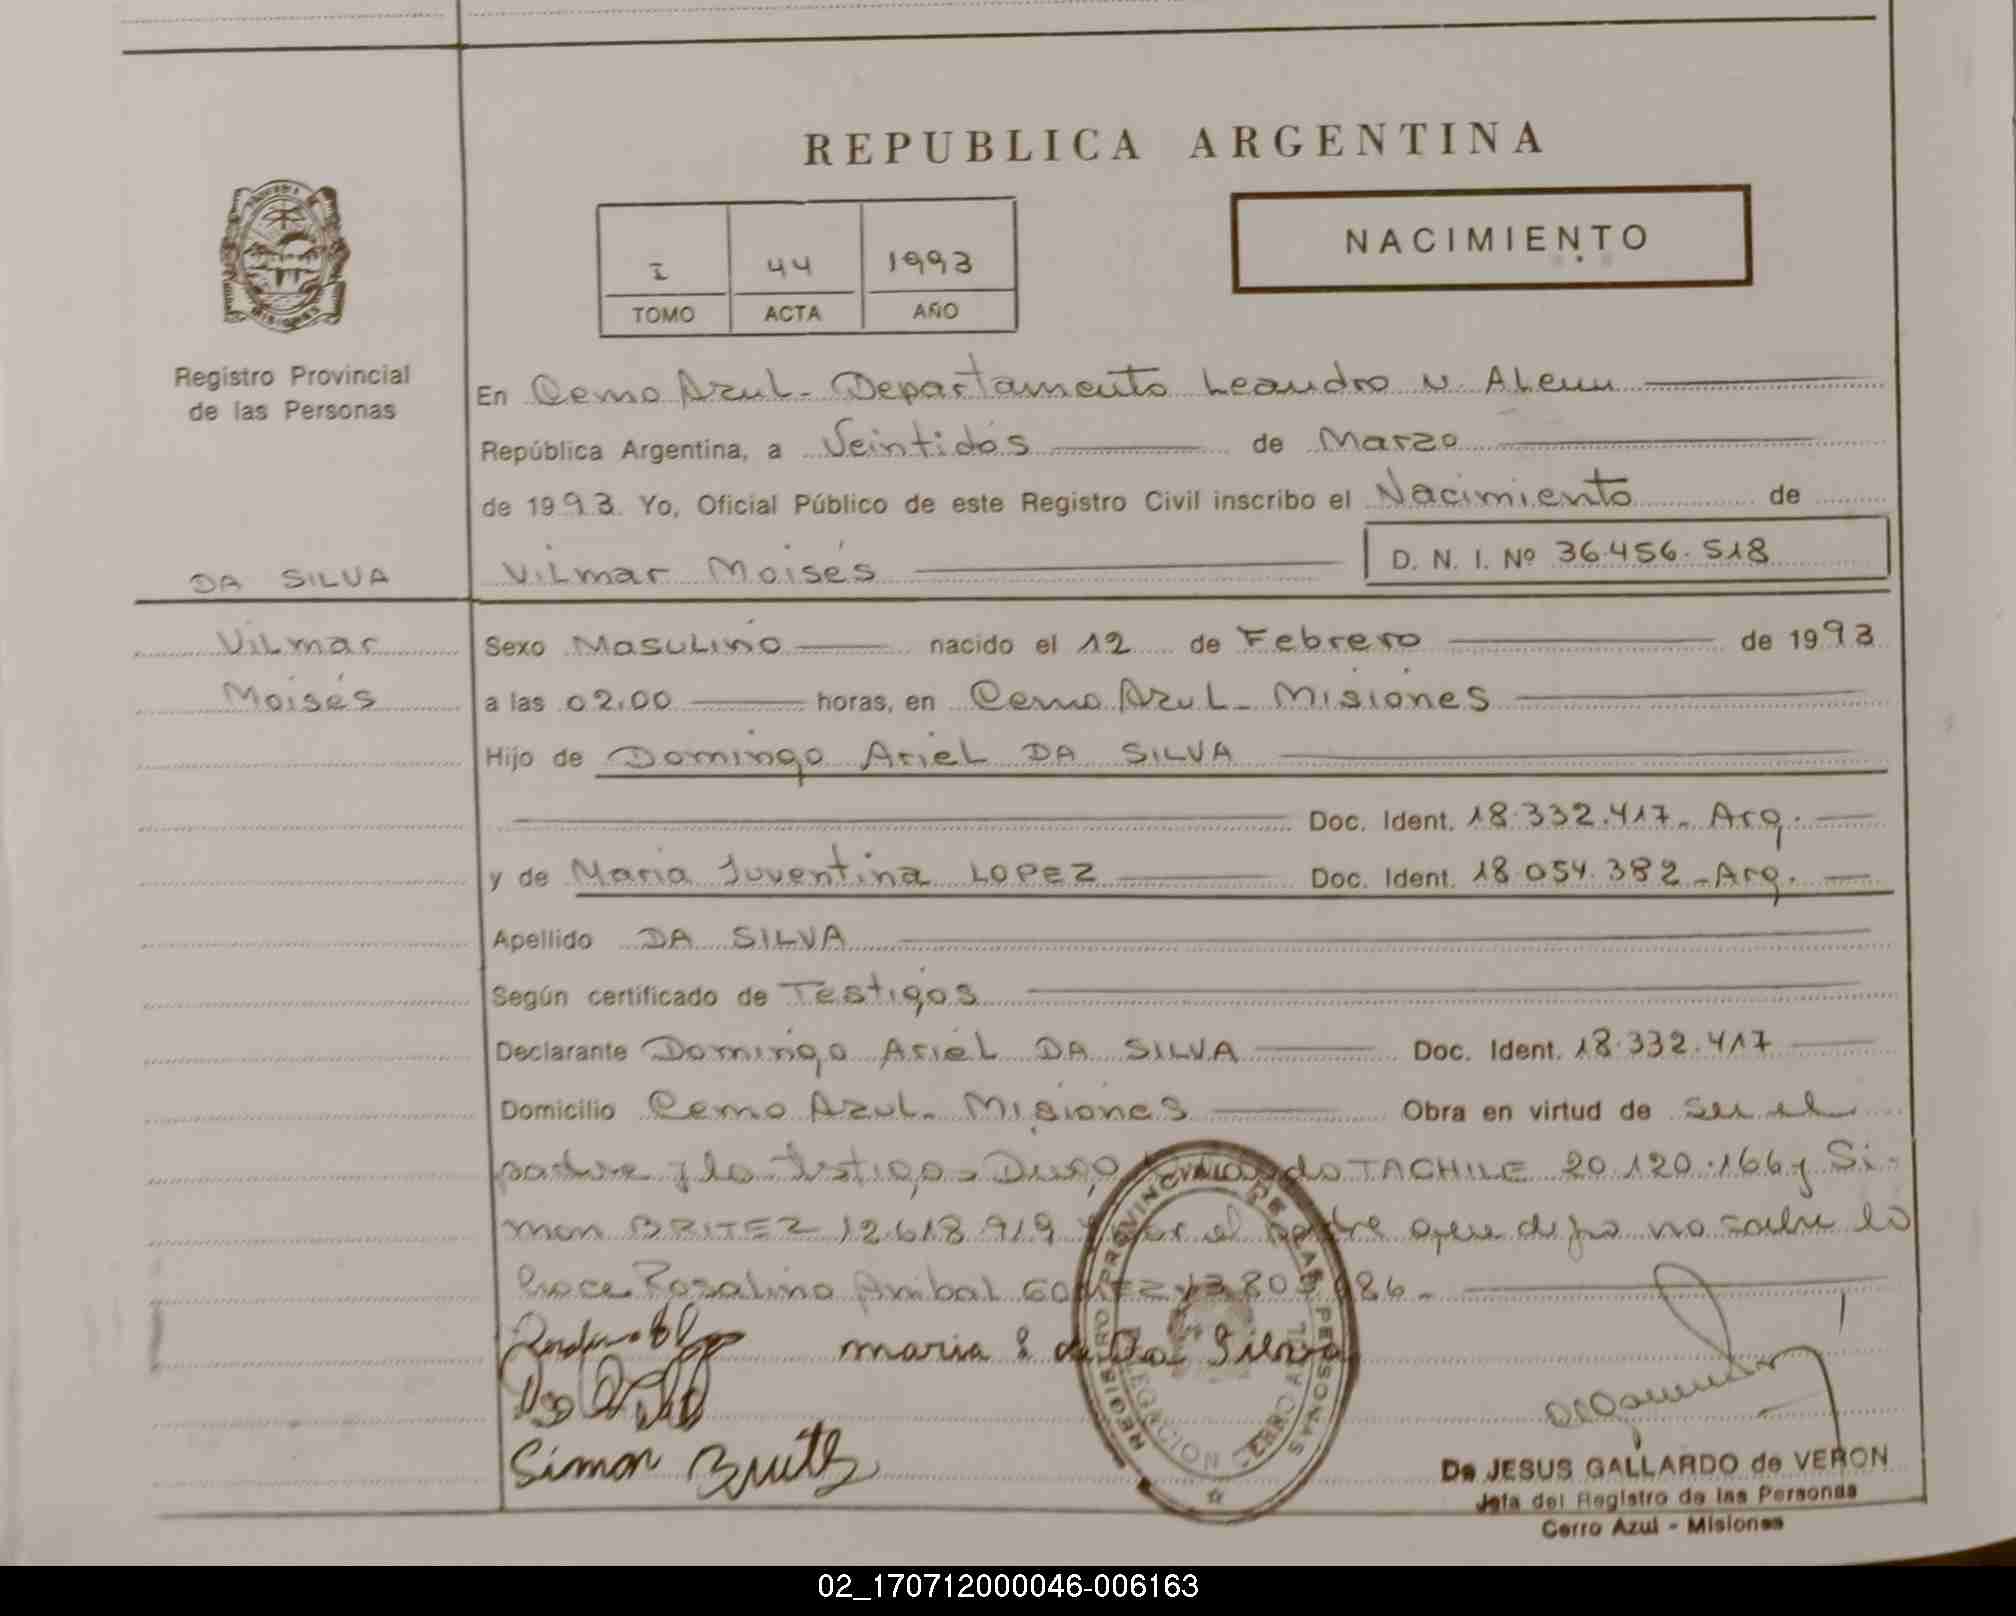 REPUBLICA ARGENTINA
NACIMIENTO
I 44 1993
TOMO ACTA AÑO
Registro Provincial
de las Personas
En Cerro Azul - Departamento Leandro N. Alem
República Argentina, a Veintidós de Marzo
de 1993. Yo, Oficial Público de este Registro Civil inscribo el Nacimiento de
Vilmar Moisés D. N. I. Nº 36.456.518
DA SILVA
Vilmar
Moisés
Sexo Masculino nacido el 12 de Febrero de 1993
a las 02.00 horas, en Cerro Azul - Misiones
Hijo de Domingo Ariel DA SILVA
Doc. Ident. 18.332.417 - Arg.
y de Maria Juventina LOPEZ Doc. Ident. 18.054.382 - Arg.
Apellido DA SILVA
Según certificado de Testigos
Declarante Domingo Ariel DA SILVA Doc. Ident. 18.332.417
Domicilio Cerro Azul - Misiones Obra en virtud de ser el
padre y lo testigo - TACHILE 20.120.166 y Si-
mon BRITEZ 12.618.919 por el padre que dijo no saber lo
hace Rosalino Anibal
maria de Da Silva
Simon Britez
REGISTRO PROVINCIAL DE LAS PERSONAS
DELEGACION
De JESUS GALLARDO de VERON
Jefa del Registro de las Personas
Cerro Azul - Misiones
02_170712000046-006163